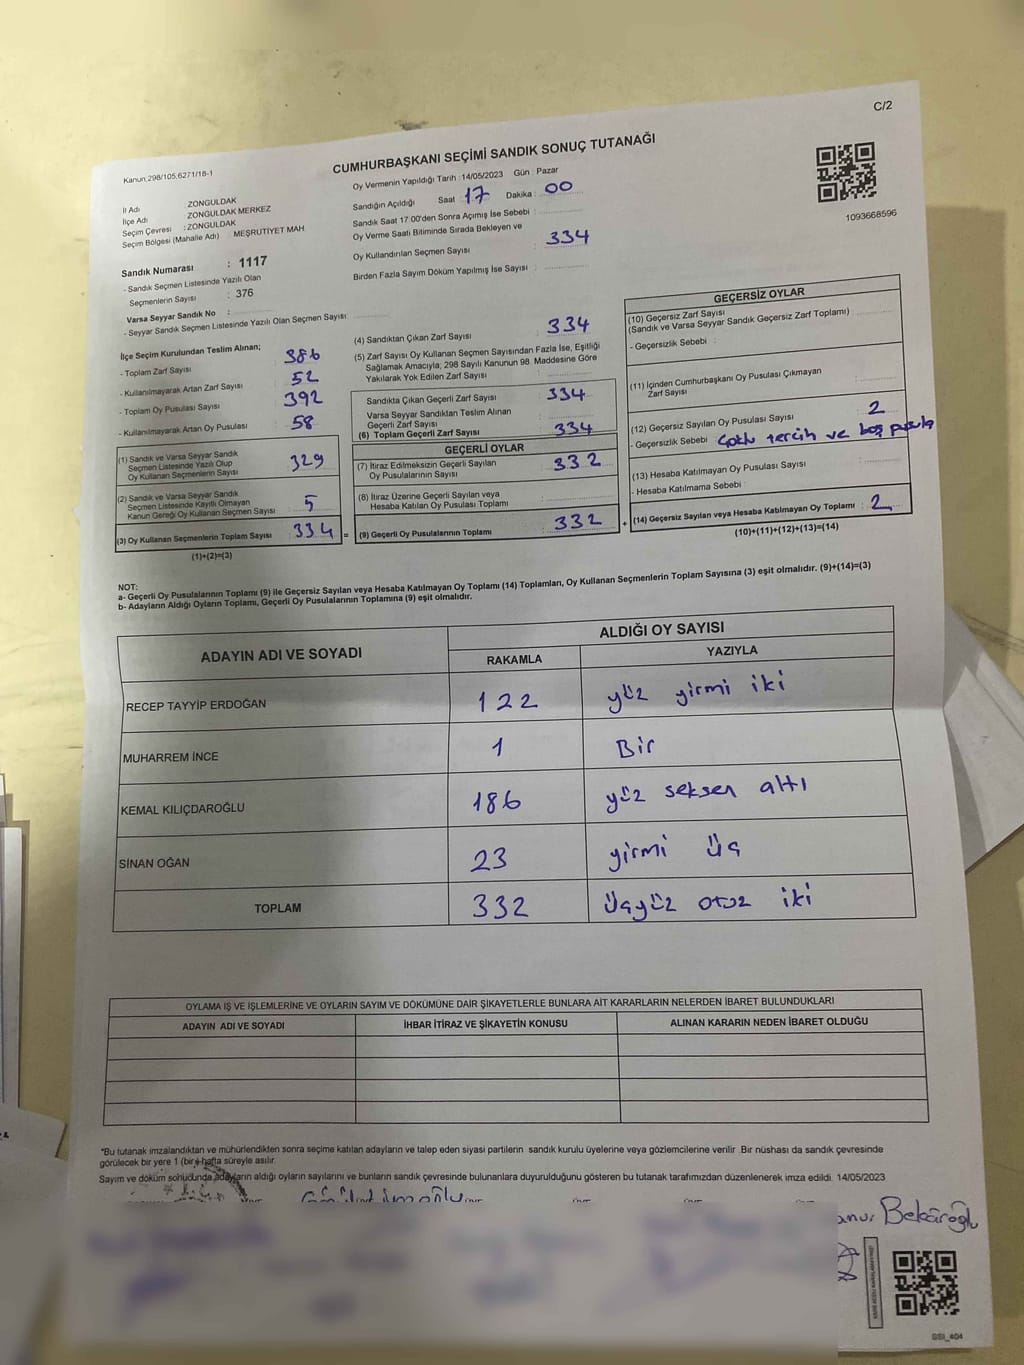 C/2
CUMHURBAŞKANI SEÇİMİ SANDIK SONUÇ TUTANAĞI
Kanun.298/105.6271/18-1
İl Adı : ZONGULDAK
İlçe Adı : ZONGULDAK MERKEZ
Seçim Çevresi : ZONGULDAK
Seçim Bölgesi (Mahalle Adı) : MEŞRUTİYET MAH
Sandık Numarası : 1117
- Sandık Seçmen Listesinde Yazılı Olan
Seçmenlerin Sayısı : 376
Varsa Seyyar Sandık No :
- Seyyar Sandık Seçmen Listesinde Yazılı Olan Seçmen Sayısı:
Oy Vermenin Yapıldığı Tarih : 14/05/2023 Gün : Pazar
Sandığın Açıldığı Saat : 17 Dakika : 00
Sandık Saat 17:00'den Sonra Açımış İse Sebebi :
Oy Verme Saati Bitiminde Sırada Bekleyen ve
Oy Kullandırılan Seçmen Sayısı : 334
Birden Fazla Sayım Döküm Yapılmış İse Sayısı :
1093668596
İlçe Seçim Kurulundan Teslim Alınan;
- Toplam Zarf Sayısı : 386
- Kullanılmayarak Artan Zarf Sayısı : 52
- Toplam Oy Pusulası Sayısı : 392
- Kullanılmayarak Artan Oy Pusulası : 58
(1) Sandık ve Varsa Seyyar Sandık
Seçmen Listesinde Yazılı Olup
Oy Kullanan Seçmenlerin Sayısı : 329
(2) Sandık ve Varsa Seyyar Sandık
Seçmen Listesinde Kayıtlı Olmayan
Kanun Gereği Oy Kullanan Seçmen Sayısı : 5
(3) Oy Kullanan Seçmenlerin Toplam Sayısı : 334 =
(1)+(2)=(3)
(4) Sandıktan Çıkan Zarf Sayısı : 334
(5) Zarf Sayısı Oy Kullanan Seçmen Sayısından Fazla İse, Eşitliği
Sağlamak Amacıyla, 298 Sayılı Kanunun 98. Maddesine Göre
Yakılarak Yok Edilen Zarf Sayısı :
Sandıkta Çıkan Geçerli Zarf Sayısı : 334
Varsa Seyyar Sandıktan Teslim Alınan
Geçerli Zarf Sayısı :
(6) Toplam Geçerli Zarf Sayısı : 334
GEÇERLİ OYLAR
(7) İtiraz Edilmeksizin Geçerli Sayılan
Oy Pusulalarının Sayısı : 332
(8) İtiraz Üzerine Geçerli Sayılan veya
Hesaba Katılan Oy Pusulası Toplamı :
(9) Geçerli Oy Pusulalarının Toplamı : 332 +
GEÇERSİZ OYLAR
(10) Geçersiz Zarf Sayısı
(Sandık ve Varsa Seyyar Sandık Geçersiz Zarf Toplamı) :
- Geçersizlik Sebebi :
(11) İçinden Cumhurbaşkanı Oy Pusulası Çıkmayan
Zarf Sayısı :
(12) Geçersiz Sayılan Oy Pusulası Sayısı : 2
- Geçersizlik Sebebi : Çoklu tercih ve boş pusula
(13) Hesaba Katılmayan Oy Pusulası Sayısı :
- Hesaba Katılmama Sebebi :
(14) Geçersiz Sayılan veya Hesaba Katılmayan Oy Toplamı : 2
(10)+(11)+(12)+(13)=(14)
NOT:
a- Geçerli Oy Pusulalarının Toplamı (9) ile Geçersiz Sayılan veya Hesaba Katılmayan Oy Toplamı (14) Toplamları, Oy Kullanan Seçmenlerin Toplam Sayısına (3) eşit olmalıdır. (9)+(14)=(3)
b- Adayların Aldığı Oyların Toplamı, Geçerli Oy Pusulalarının Toplamına (9) eşit olmalıdır.
ADAYIN ADI VE SOYADI ALDIĞI OY SAYISI
RAKAMLA YAZIYLA
RECEP TAYYİP ERDOĞAN 122 yüz yirmi iki
MUHARREM İNCE 1 Bir
KEMAL KILIÇDAROĞLU 186 yüz seksen altı
SİNAN OĞAN 23 yirmi üç
TOPLAM 332 Üçyüz otuz iki
OYLAMA İŞ VE İŞLEMLERİNE VE OYLARIN SAYIM VE DÖKÜMÜNE DAİR ŞİKAYETLERLE BUNLARA AİT KARARLARIN NELERDEN İBARET BULUNDUKLARI
ADAYIN ADI VE SOYADI İHBAR İTİRAZ VE ŞİKAYETİN KONUSU ALINAN KARARIN NEDEN İBARET OLDUĞU
*Bu tutanak imzalandıktan ve mühürlendikten sonra seçime katılan adayların ve talep eden siyasi partilerin sandık kurulu üyelerine veya gözlemcilerine verilir. Bir nüshası da sandık çevresinde
görülecek bir yere 1 (bir) hafta süreyle asılır.
Sayım ve döküm sonucunda adayların aldığı oyların sayılarını ve bunların sandık çevresinde bulunanlara duyurulduğunu gösteren bu tutanak tarafımızdan düzenlenerek imza edildi. 14/05/2023
Bekâroğlu
SSI_404